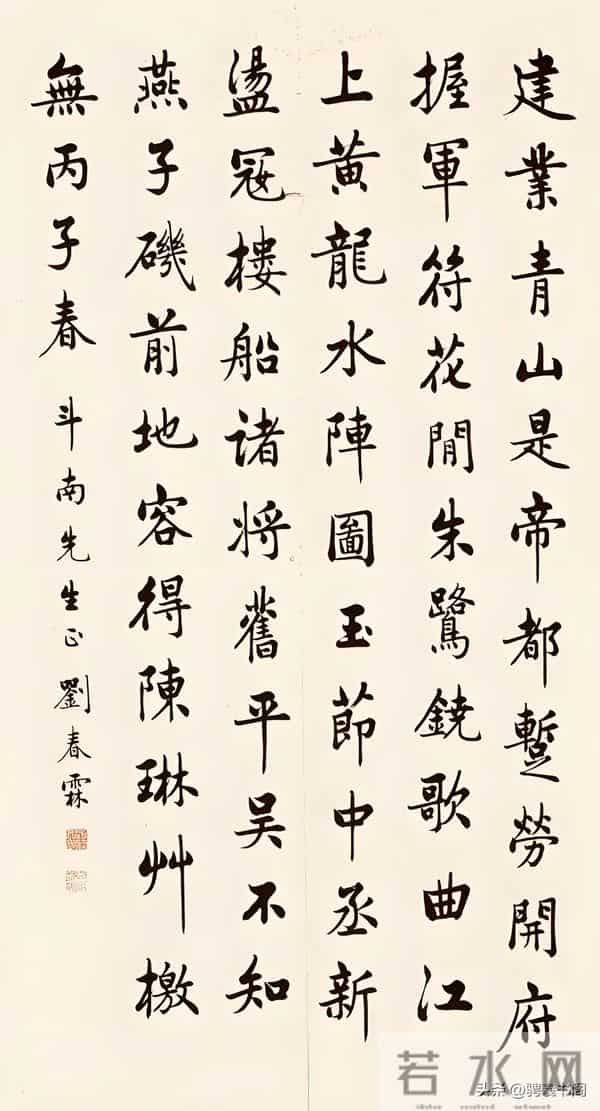 建業青山是帝都蹔勞開府
握軍符花閒朱鷺鐃歌曲江
上黃龍水陣圖玉節中丞新
盪寇樓船諸將舊平吳不知
燕子磯前地容得陳琳艸檄
無丙子春 斗南先生正 劉春霖
若水网